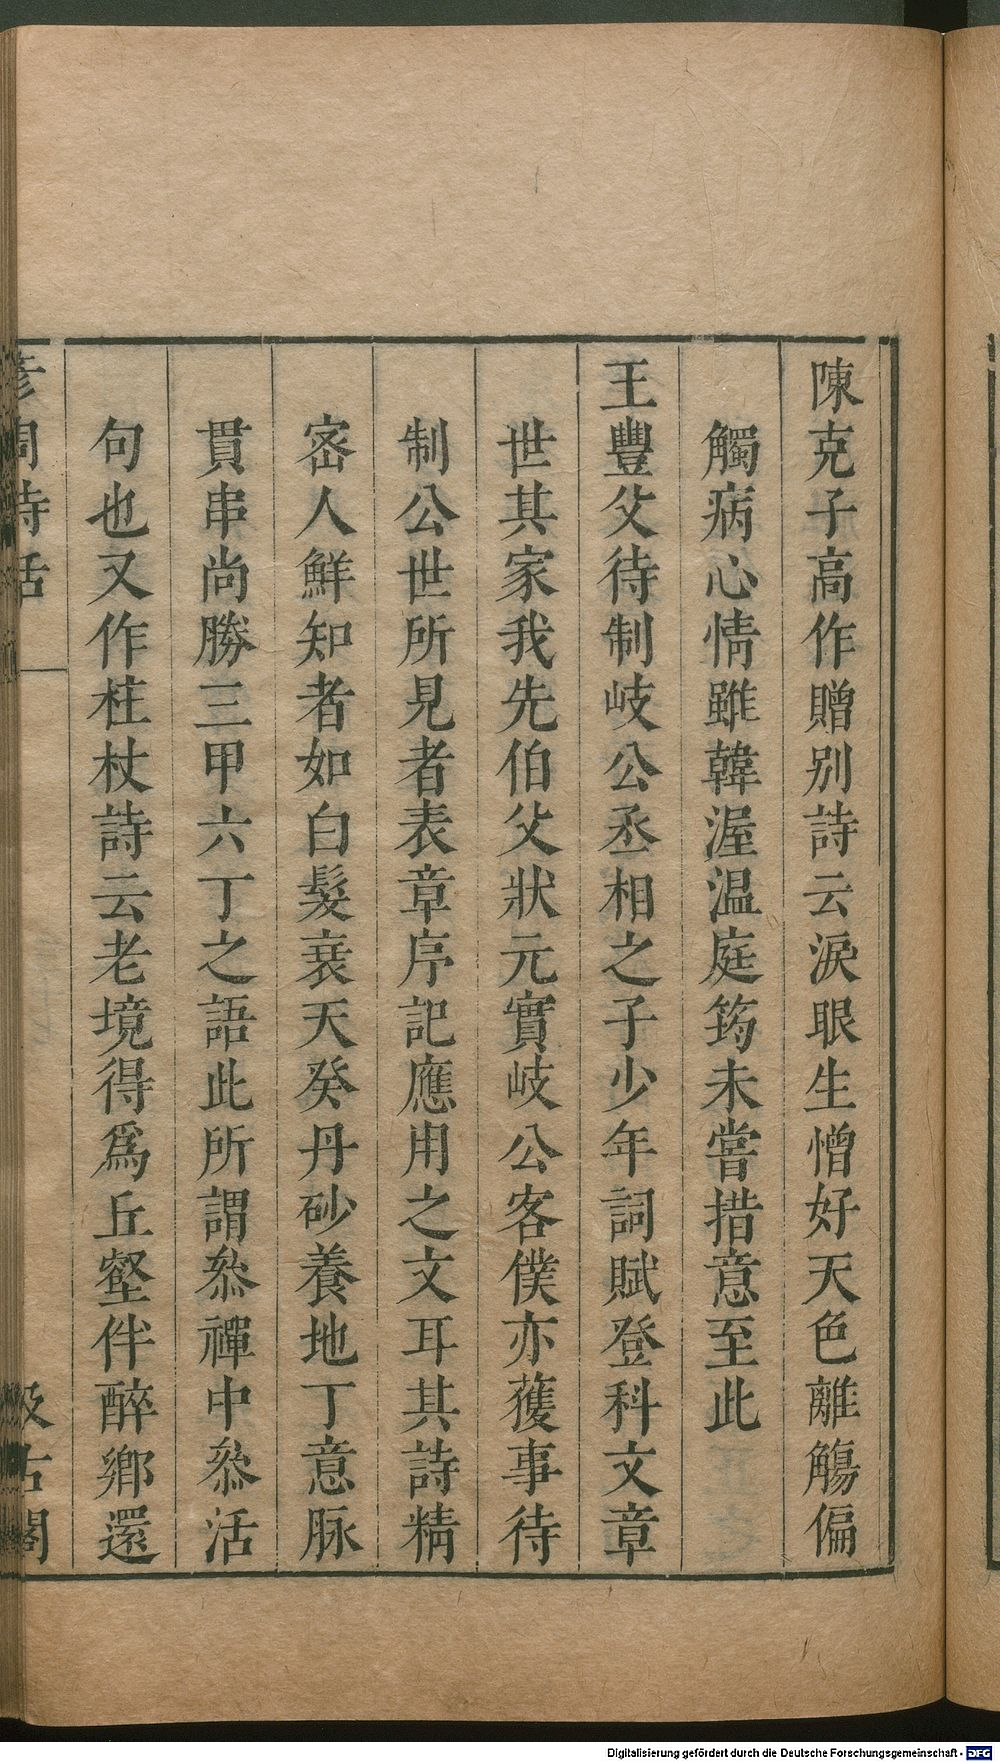 陳克子高作贈別詩云淚眼生憎好天色離觴偏
觸病心情雖韓渥温庭筠未嘗措意至此
王豐父待制岐公丞相之子少年詞賦登科文章
世其家我先伯父狀元實岐公客僕亦獲事待
制公世所見者表章序記應用之文耳其詩精
密人鮮知者如白髮衰天癸丹砂養地丁意脉
貫串尚勝三甲六丁之語此所謂叅禪中叅活
句也又作柱杖詩云老境得爲丘壑伴醉鄉還
彦周詩話
汲古閣
Digitalisierung gefördert durch die Deutsche Forschungsgemeinschaft - DFG